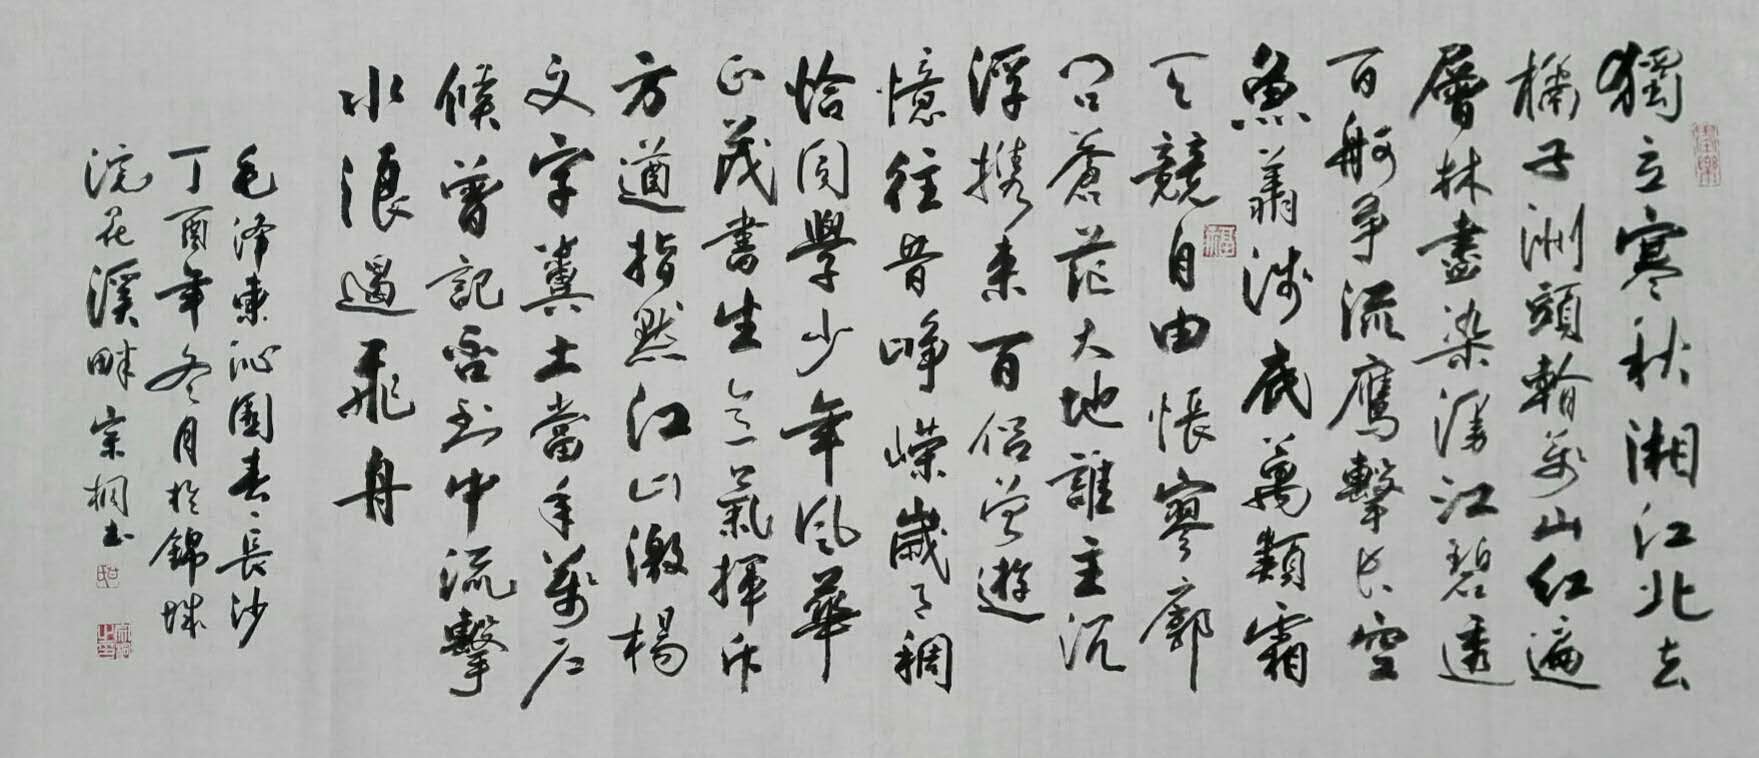 獨立寒秋湘江北去
橘子洲頭看萬山红遍
層林盡染漫江碧透
百舸争流鷹擊長空
魚翔淺底萬類霜
天競自由悵寥廓
問蒼茫大地誰主沉
浮携来百侣曾遊
憶往昔峥嶸歲月稠
恰同學少年風華
正茂書生意氣揮斥
方遒指點江山激楊
文字糞土當年萬户
候曾記否到中流擊
水浪遏飛舟
毛泽東沁園春·長沙
丁酉年冬月於錦城
浣花溪畔宗桐书